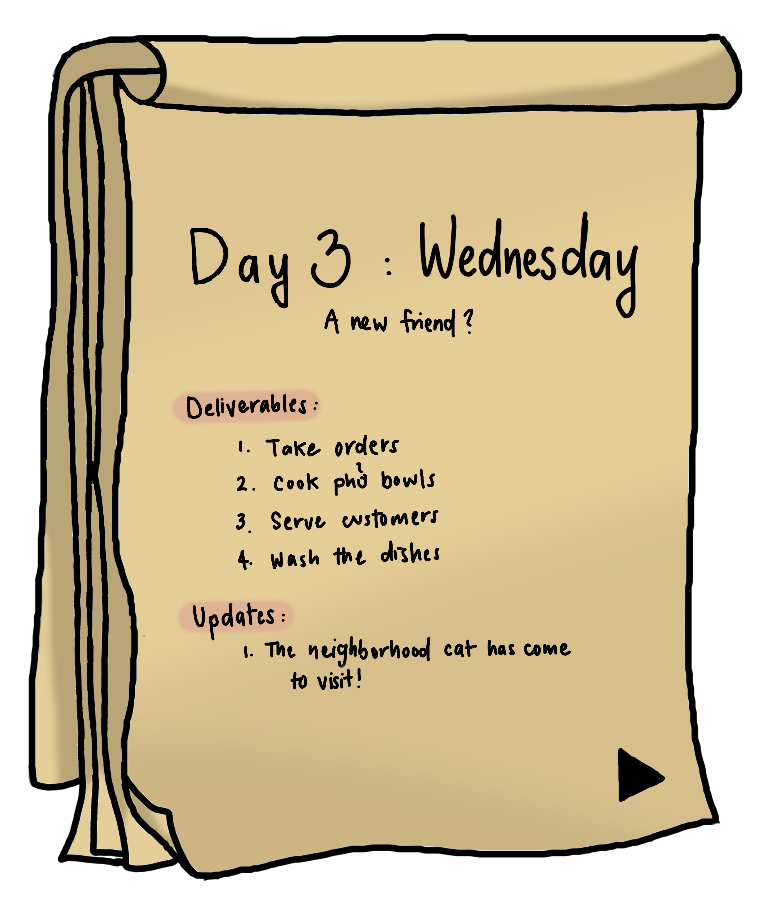 Day 3 : Wednesday
A new friend?
Deliverables:
1. Take orders
2. Cook phở bowls
3. Serve customers
4. Wash the dishes
Updates:
1. The neighborhood cat has come
to visit!